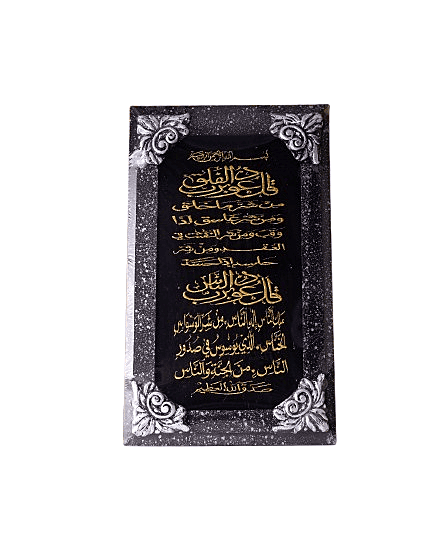 بسم الله الرحمن الرحيم
قل أعوذ برب الفلق
من شر ما خلق
ومن شر غاسق إذا
وقب ومن شر النفثت في
العقد ومن شر
حاسد إذا حسد
قل أعوذ برب الناس
ملك الناس إله الناس من شر الوسواس
الخناس الذي يوسوس في صدور
الناس من الجنة والناس
صدق الله العظيم